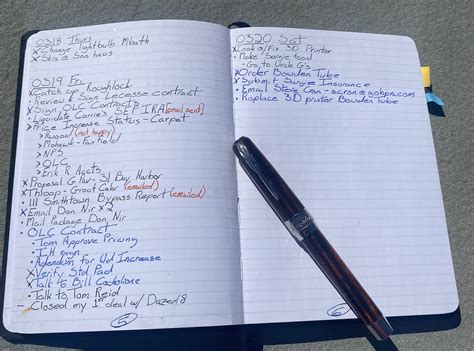 0318 Thurs
x Change lightbulb Mbath
x Ski @ Snohaus
0319 Fri
x Catch up Roughlock
• Review & Sign Lacrosse contract
x Sign OLC Contract
• Liquidate Carries SEP IRA [email sent]
x Price Increase Status - Carpet
> Kwood (not happy)
> Mohawk - Fairfield
> NPS
> OLC
> Erik R Accts
x Proposal G Pav - 31 Bay Harbor
x Throop - Grout Color (emailed)
• 111 Smithtown Bypass Report (emailed)
x Email Don Nir x2
• Mail Package Don Nir
• OLC Contract
• Tom Approve Pricing
• IH sign
• Addendum for Ud Increase
x Verify Std Pad
x Talk to Bill
• Talk to Tom Reid
– Closed my 1st deal w/ Dazed8
5
0320 Sat
x Look @/Fix 3D Printer
• Make Sarge food
• Go to Uncle G's
x Order Bowden Tube
x Submit Sarge Insurance
• Email Steve Cron - scron@gobpn.com
• Replace 3D printer Bowden Tube
6